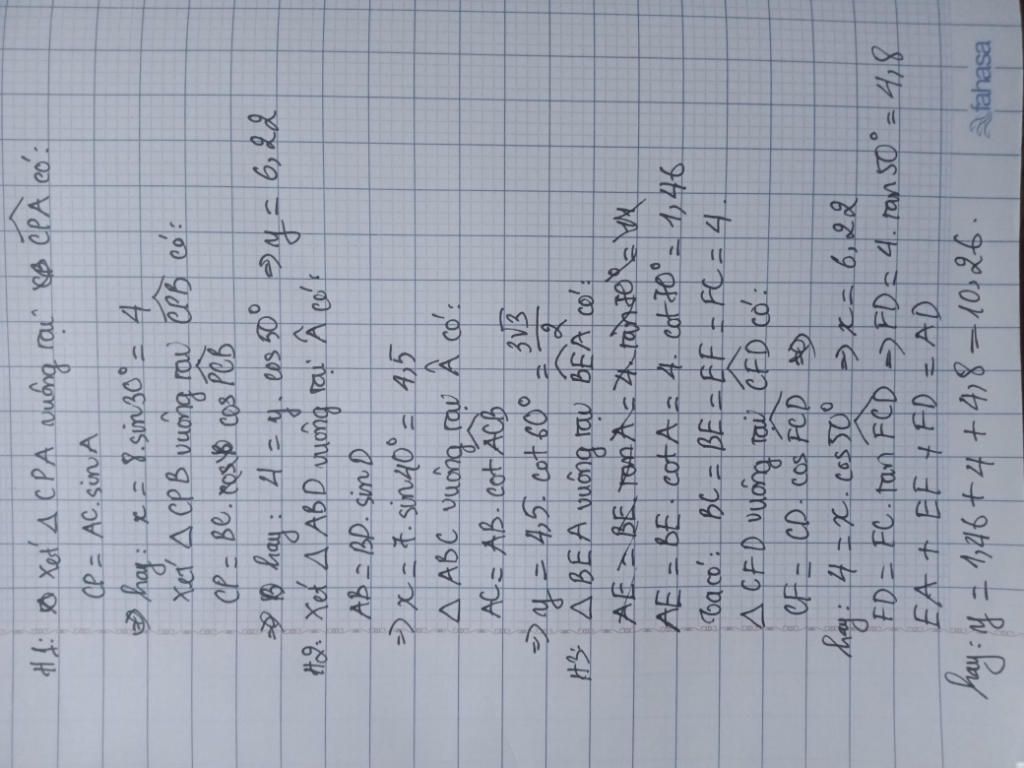 H1: Xét Δ CPA vuông tại CPA có:
CP = AC. sin A
⇒ hay: x = 8. sin30° = 4
Xét Δ CPB vuông tại CPB có:
CP = BC. cos PCB
⇒ hay: 4 = y. cos 50° ⇒ y = 6,22
H2: Xét Δ ABD vuông tại Â có:
AB = BD. sin D
⇒ x = 7. sin 40° = 4,5
Δ ABC vuông tại Â có:
AC = AB. cot ACB
⇒ y = 4,5. cot 60° = 3√3/2
H3: Δ BEA vuông tại BEA có:
AE = BE tan A = 4. tan 70° =
AE = BE. cot A = 4. cot 70° = 1,46
Ta có: BC = BE = EF = FC = 4.
Δ CFD vuông tại CFD có:
CF = CD. cos FCD
hay: 4 = x. cos 50° ⇒ x = 6,22
FD = FC. tan FCD ⇒ FD = 4. tan 50° = 4,8
EA + EF + FD = AD
hay: y = 1,46 + 4 + 4,8 = 10,26.
fahasa